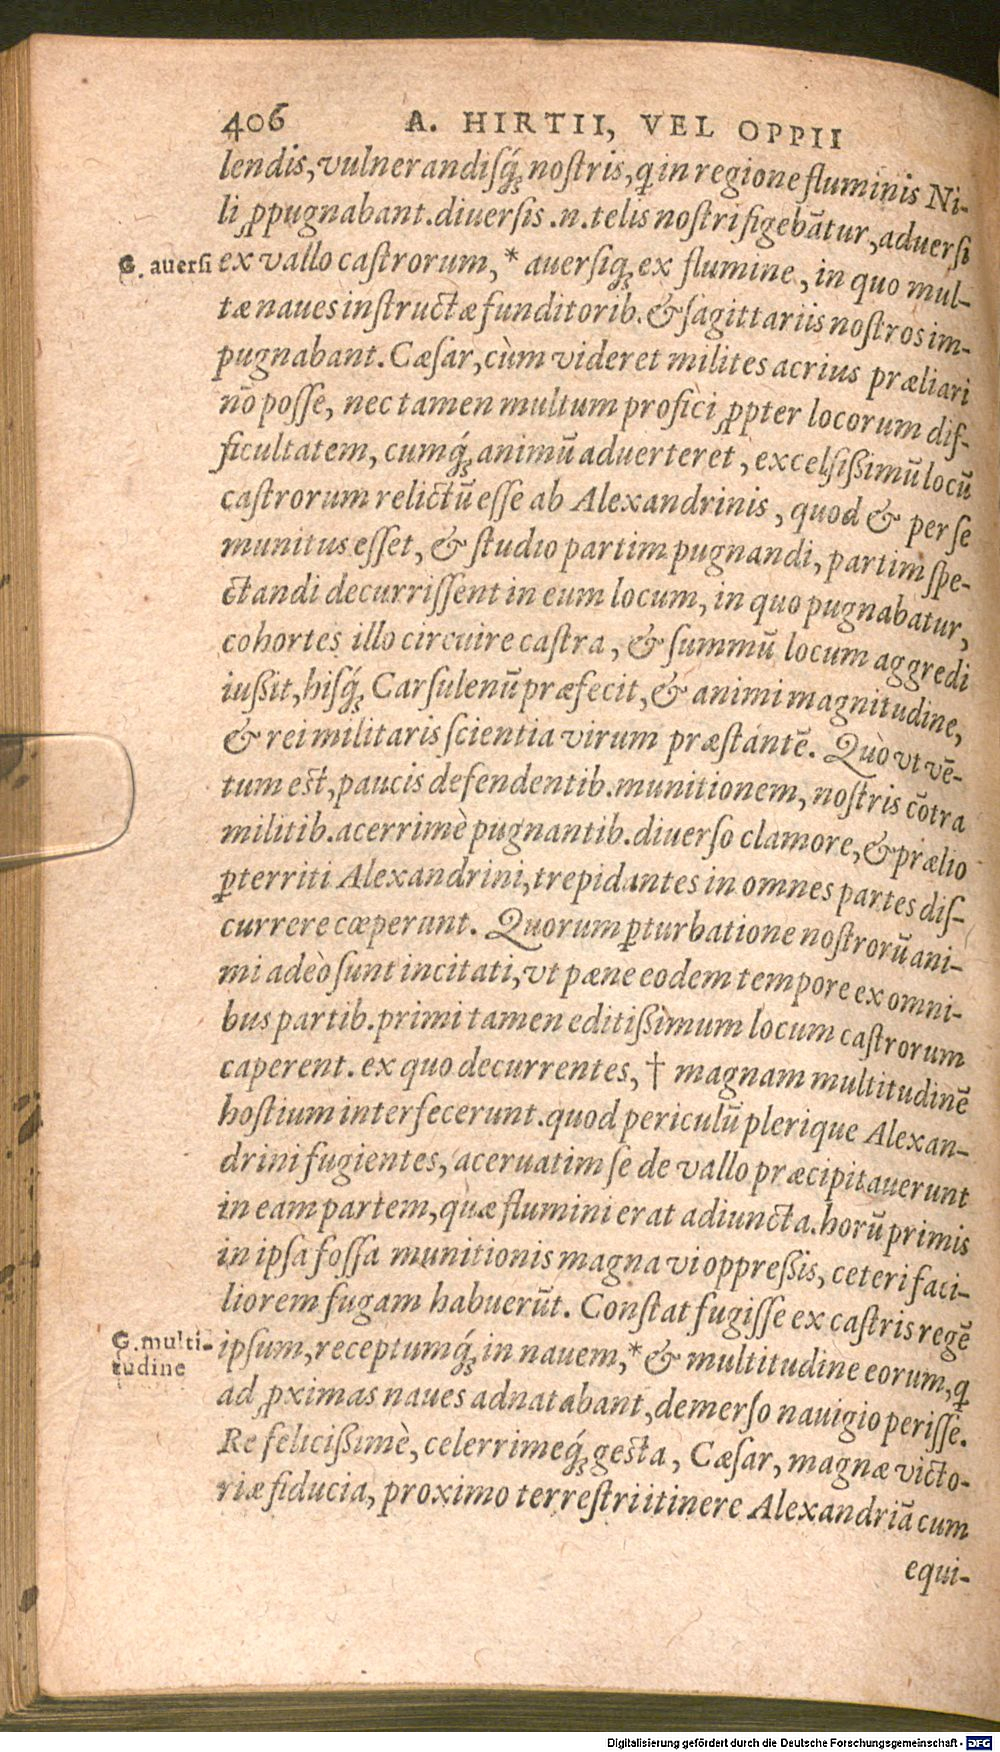 406 A. HIRTII, VEL OPPII
lendis, vulnerandisq́ꝫ nostris, ꝗ in regione fluminis Ni-
li ꝓpugnabant. diuersis .n. telis nostri figebātur, aduersi
G. auersi
ex vallo castrorum, * auersiqꝫ ex flumine, in quo mul-
tæ naues instructæ funditorib. & sagittariis nostros im-
pugnabant. Cæsar, cùm videret milites acrius præliari
nō posse, nec tamen multum profici ꝓpter locorum dif-
ficultatem, cumq́ꝫ animū aduerteret, excelsißimū locū
castrorum relictū esse ab Alexandrinis, quod & per se
munitus esset, & studio partim pugnandi, partim spe-
ctandi decurrissent in eum locum, in quo pugnabatur,
cohortes illo circuire castra, & summū locum aggredi
iußit, hisq́ꝫ Carsulenū præfecit, & animi magnitudine,
& rei militaris scientia virum præstantē. Quò vt vē-
tum est, paucis defendentib. munitionem, nostris cōtra
militib. acerrimè pugnantib. diuerso clamore, & prælio
ꝑterriti Alexandrini, trepidantes in omnes partes dis-
currere cœperunt. Quorum ꝑturbatione nostrorū ani-
mi adeò sunt incitati, vt pæne eodem tempore ex omni-
bus partib. primi tamen editißimum locum castrorum
caperent. ex quo decurrentes, † magnam multitudinē
hostium interfecerunt. quod periculū plerique Alexan-
drini fugientes, aceruatim se de vallo præcipitauerunt
in eam partem, quæ flumini erat adiuncta. horū primis
in ipsa fossa munitionis magna vi oppreßis, ceteri faci-
liorem fugam habuerūt. Constat fugisse ex castris regē
G. multi-
tudine
ipsum, receptumq́ꝫ in nauem, * & multitudine eorum, ꝗ
ad ꝓximas naues adnatabant, demerso nauigio perisse.
Re felicißimè, celerrimeq́ꝫ gesta, Cæsar, magnæ victo-
riæ fiducia, proximo terrestri itinere Alexandriā cum
equi-
Digitalisierung gefördert durch die Deutsche Forschungsgemeinschaft - DFG